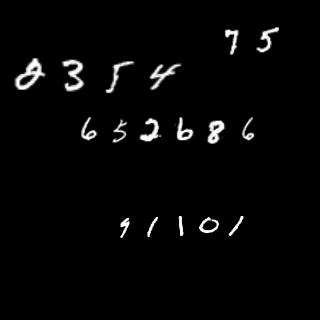 75
8354
652686
91101